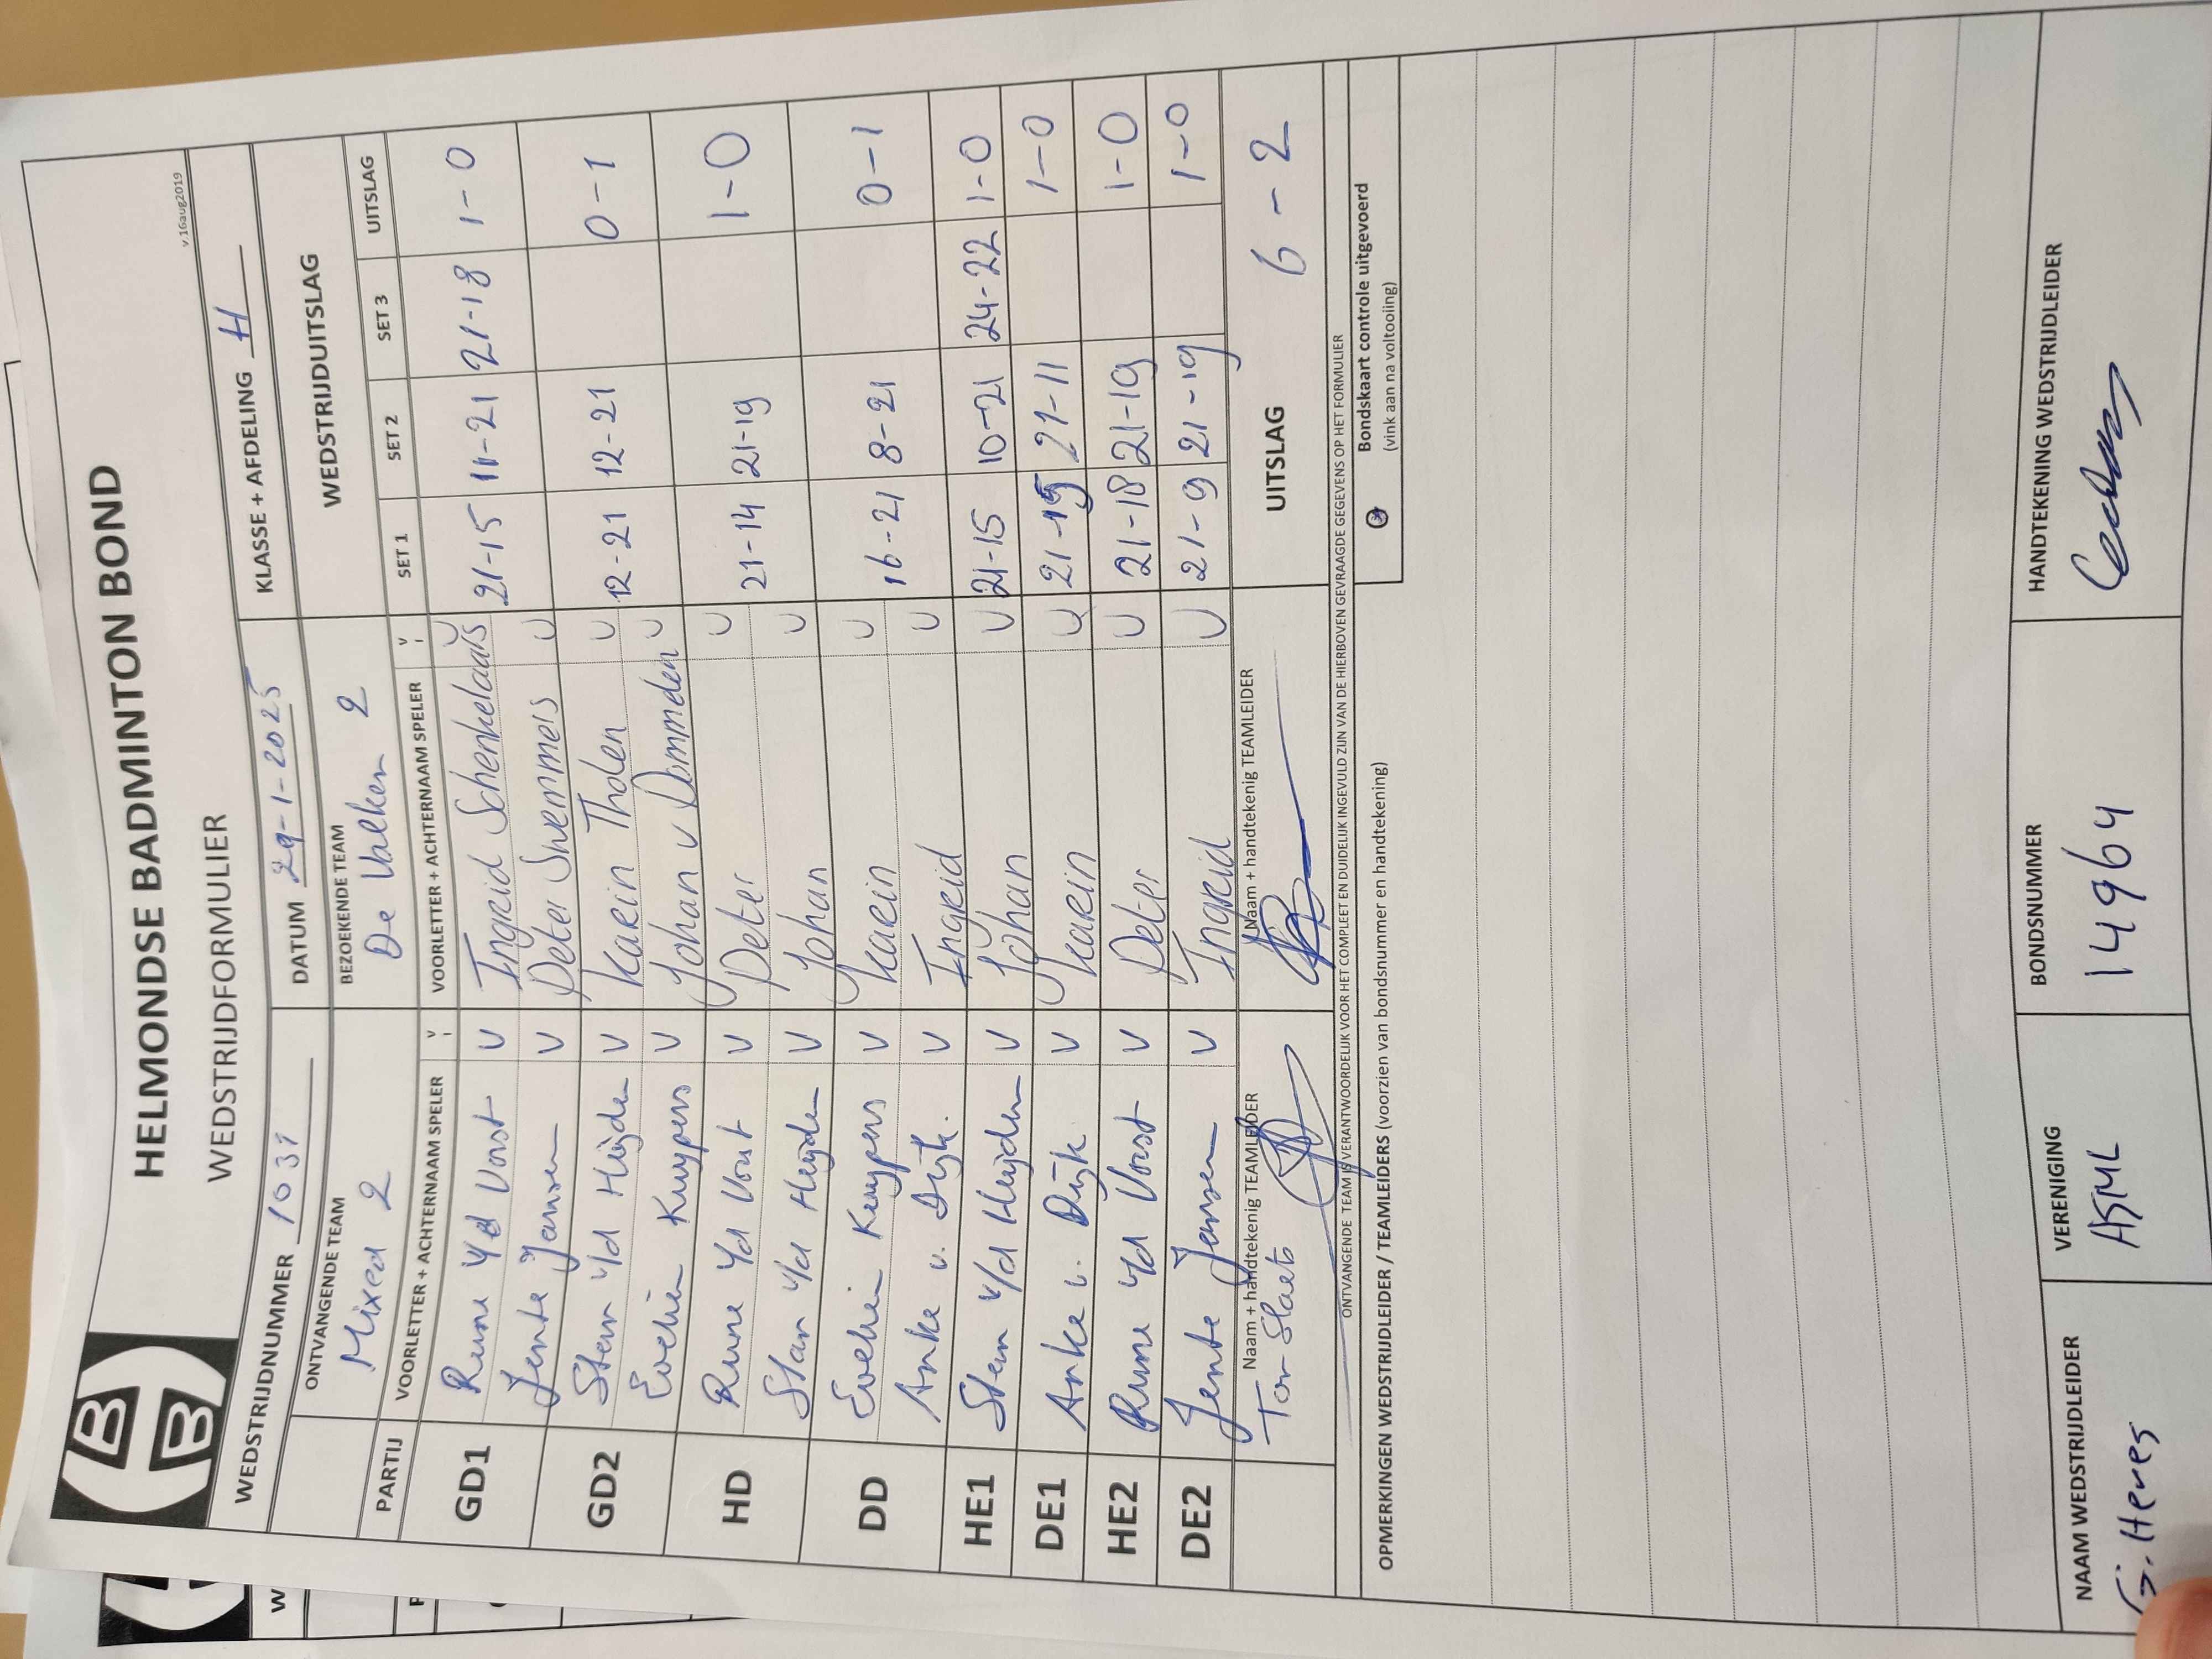 HELMONDSE BADMINTON BOND
WEDSTRIJDFORMULIER
v.16aug2019
WEDSTRIJDNUMMER 1031 DATUM 29-1-2025 KLASSE + AFDELING H
ONTVANGENDE TEAM BEZOEKENDE TEAM WEDSTRIJDUITSLAG
Mixed 2 De Valken 2
PARTIJ VOORLETTER + ACHTERNAAM SPELER V VOORLETTER + ACHTERNAAM SPELER V SET 1 SET 2 SET 3 UITSLAG
GD1 Rune v/d Vorst V Ingrid Schenkelaars V 21-15 11-21 21-18 1-0
Jente Jansen V Peter Swemmers V
GD2 Stan v/d Heijden V Karin Tholen V 12-21 12-21 0-1
Evelien Kuypers V Johan v Dommelen V
HD Rune v/d Vorst V Peter V 21-14 21-19 1-0
Stan v/d Heijden V Johan V
DD Evelien Kuypers V Karin V 16-21 8-21 0-1
Anke v. Dijk. V Ingrid V
HE1 Stan v/d Heijden V Johan V 21-15 10-21 24-22 1-0
DE1 Anke v. Dijk V Karin V 21-15 21-11 1-0
HE2 Rune v/d Vorst V Peter V 21-18 21-19 1-0
DE2 Jente Jansen V Ingrid V 21-9 21-19 1-0
Naam + handtekenig TEAMLEIDER Naam + handtekenig TEAMLEIDER UITSLAG 6-2
Ton Slaets
ONTVANGENDE TEAM IS VERANTWOORDELIJK VOOR HET COMPLEET EN DUIDELIJK INGEVULD ZIJN VAN DE HIERBOVEN GEVRAAGDE GEGEVENS OP HET FORMULIER
OPMERKINGEN WEDSTRIJDLEIDER / TEAMLEIDERS (voorzien van bondsnummer en handtekening)
Bondskaart controle uitgevoerd
(vink aan na voltooiing)
NAAM WEDSTRIJDLEIDER VERENIGING BONDSNUMMER HANDTEKENING WEDSTRIJDLEIDER
G. Heres ASML 14964